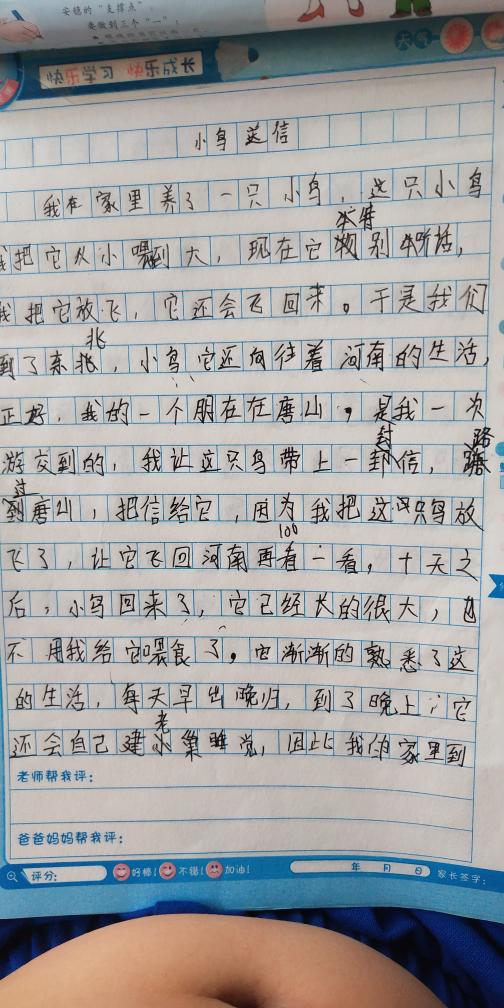 安稳的“支撑点”；
要做到三个“一”：
天气
快乐学习 快乐成长
小鸟送信
我在家里养了一只小鸟，这只小鸟
我把它从小喂到大，现在它特别听话，
我把它放飞，它还会飞回来。于是我们
到了东北，小鸟它还向往着河南的生活，
正好，我的一个朋友在唐山，是我一次
游交到的，我让这只鸟带上一封信，路
过唐山，把信给它，因为我把这只鸟放
飞了，让它飞回河南再看一看，十天之
后，小鸟回来了，它已经长的很大，也
不用我给它喂食了。它渐渐的熟悉了这
的生活，每天早出晚归，到了晚上，它
还会自己建小巢睡觉，因此我的家里到
老师帮我评：
爸爸妈妈帮我评：
评分： 好棒！ 不错！ 加油！ 年 月 日 家长签字：